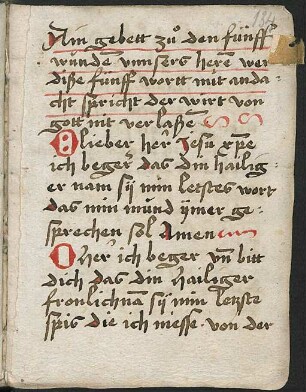 Ain gebett zuͦ den fúnff
wunden vnnsers heren wer
diße fúnff wortt mit anda-
cht spricht der wirt von
gott nit verlaßen
O lieber her Jesu xp̄e
ich beger das din hailig-
er nam sy min letstes wort
das min mund ymer ge-
sprechen sol Amen
O her ich beger vn̄ bitt
dich das din hailiger
fronlichnā sy min letzte
spis die ich niesse von der